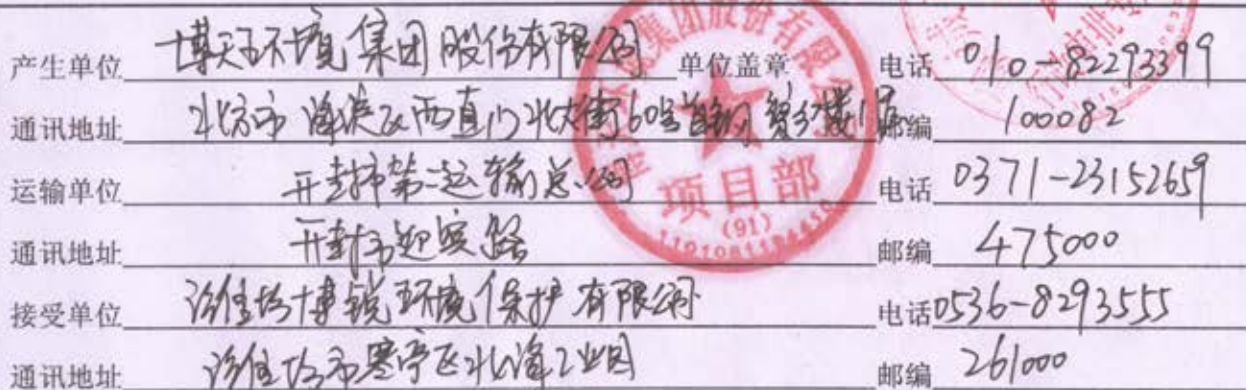 产生单位 博天环境集团股份有限公司 单位盖章 电话 010-82293399
通讯地址 北京市海淀区西直门北大街60号首钢综合楼1层 邮编 100082
运输单位 开封市第一运输总公司 电话 0371-23152659
通讯地址 开封市迎宾路 邮编 475000
接受单位 潍坊博锐环境保护有限公司 电话 0536-8293555
通讯地址 潍坊市寒亭区北海工业园 邮编 261000
集团股份有限公司
项目部
(91)